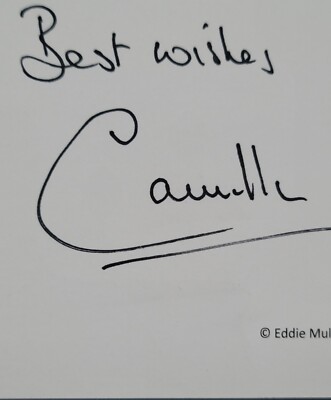 Best wishes
Camilla
© Eddie Mul